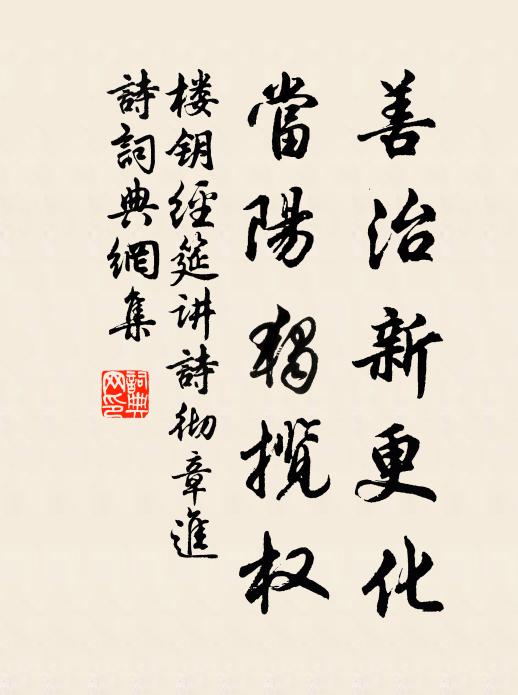 善治新更化
當陽獨揽权
楼钥經筵讲詩彻章進
詩詞典網集
詞典網印